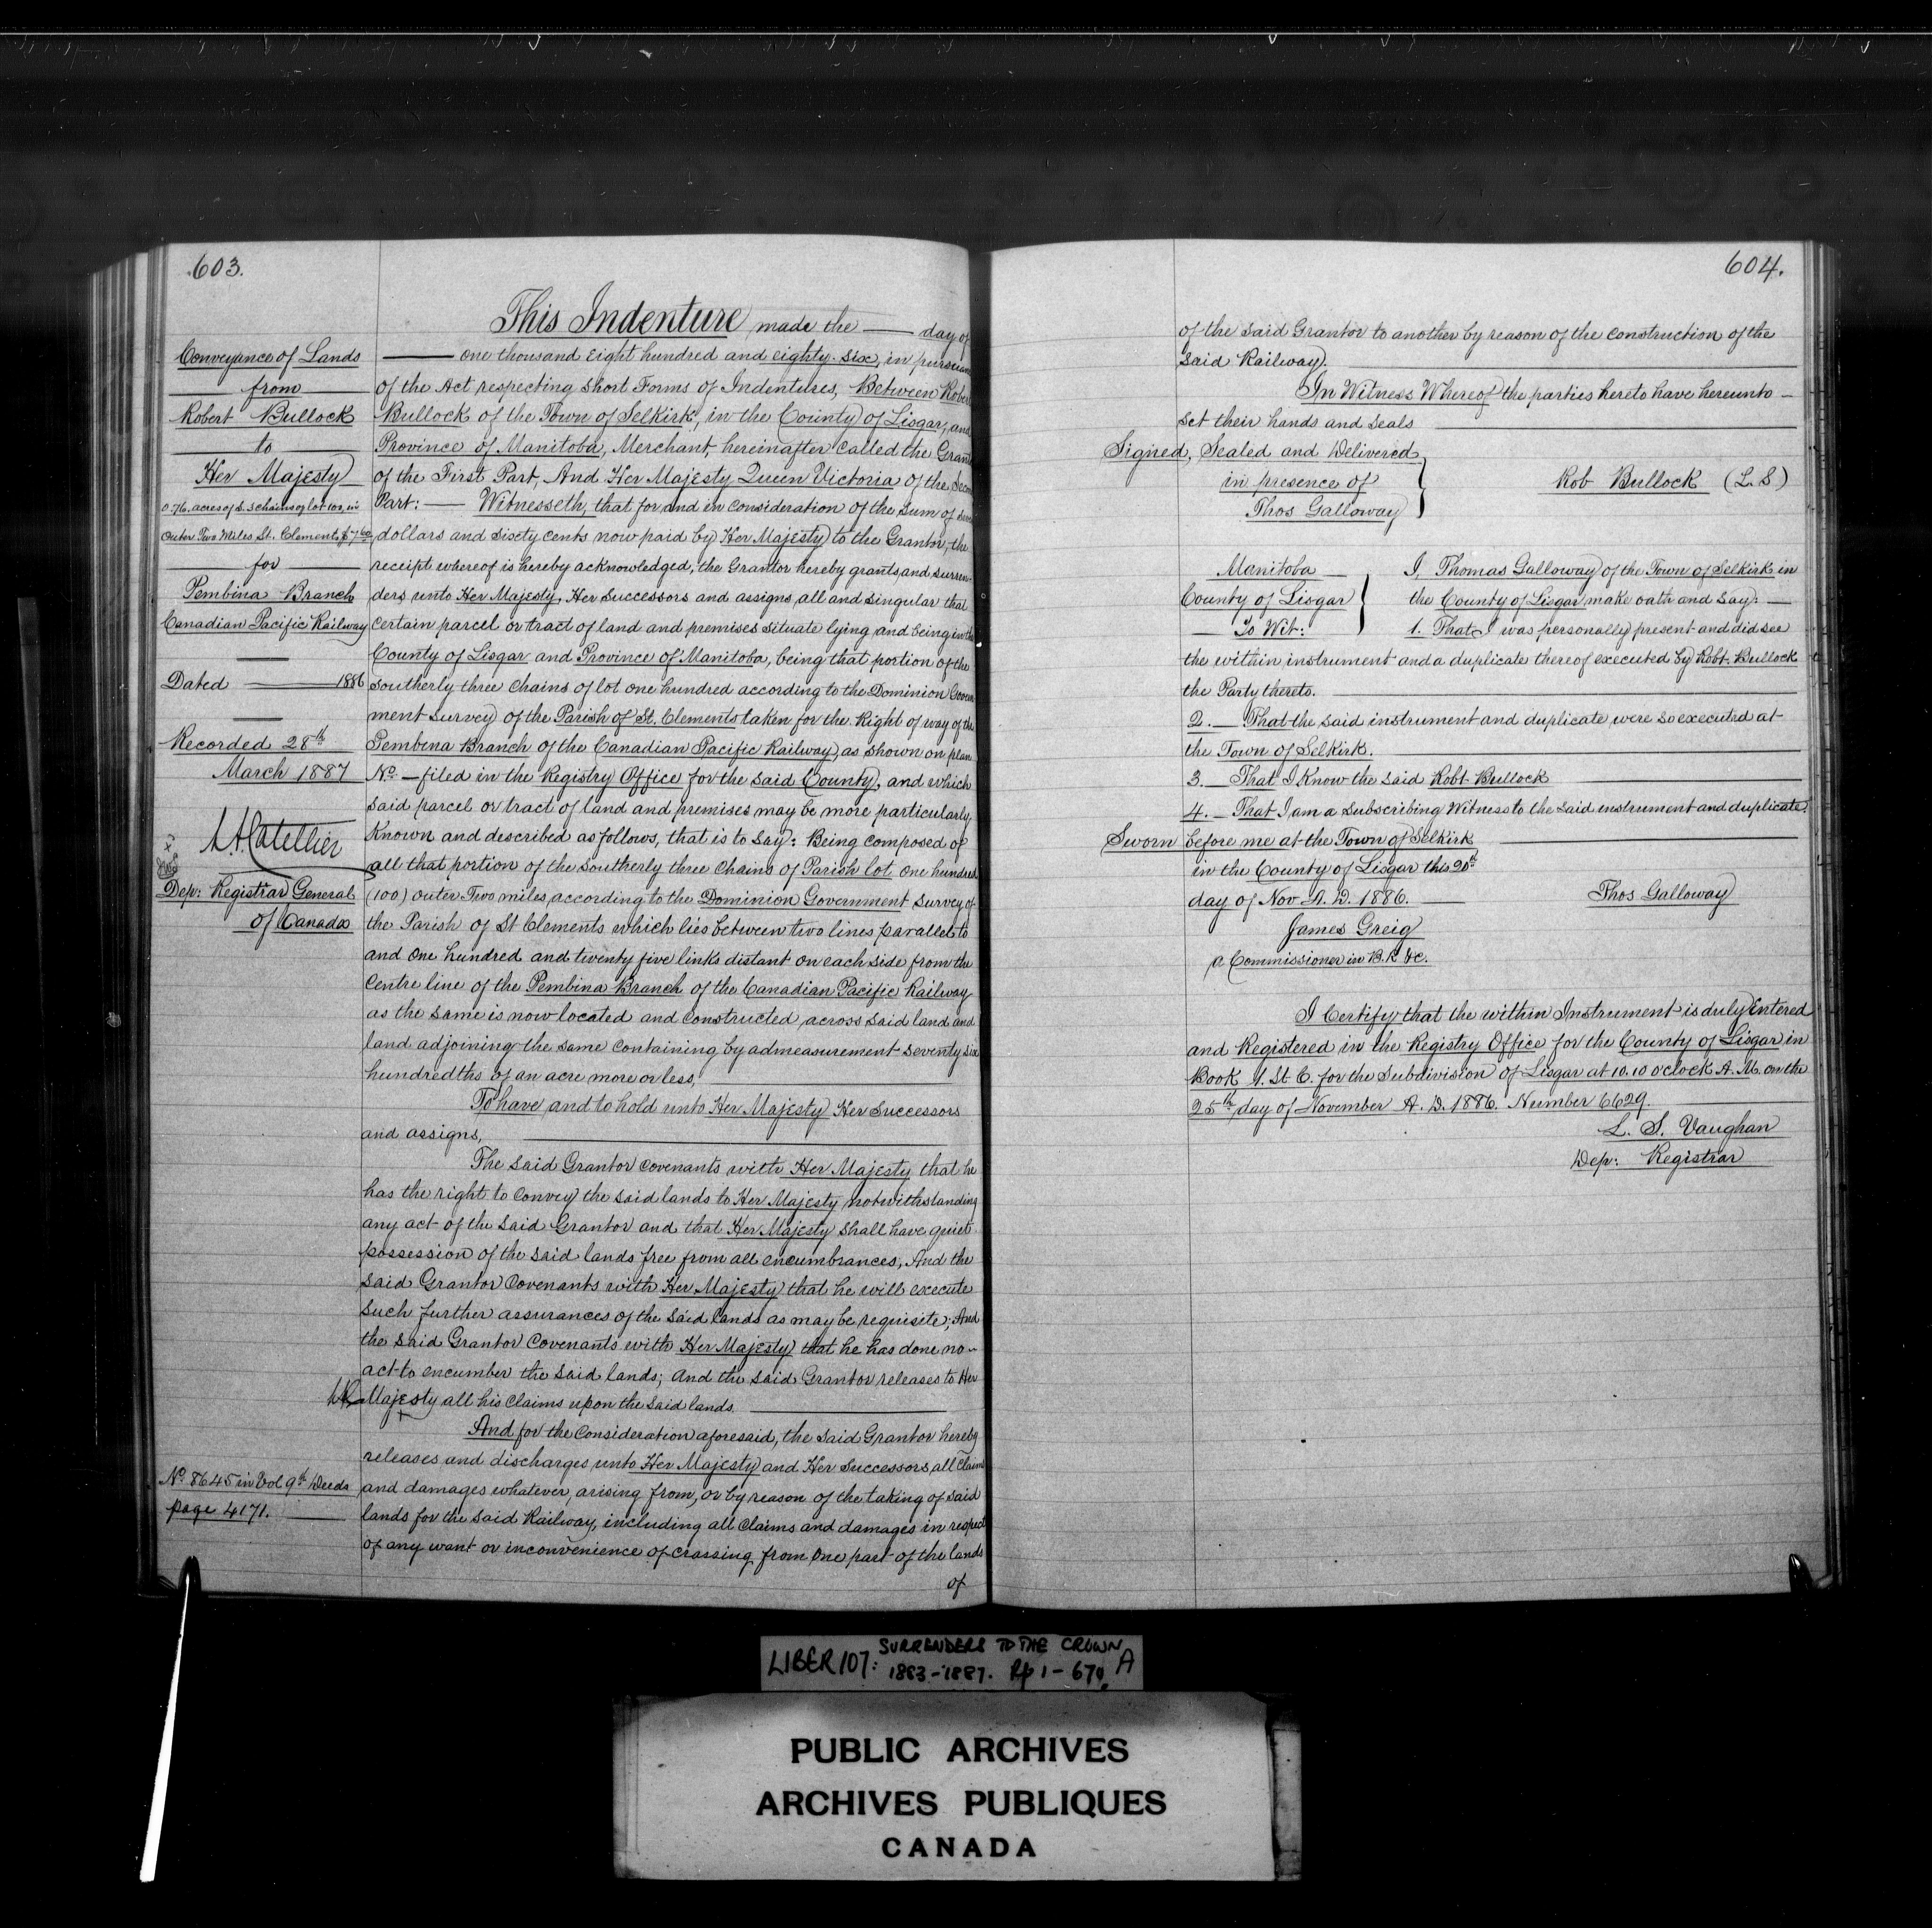 603.
This Indenture made the — day of
Conveyance of Lands
from
Robert Bullock
to
Her Majesty
0.76. acres of S. 3 chains of lot 100, in
Outer Two Miles St. Clements $7.60
for
Pembina Branch
Canadian Pacific Railway
Dated — 1886
Recorded 28th
March 1887
Dep: Registrar General
of Canada
No 8645 in Vol 9th Deeds
page 4171.
— one thousand Eight hundred and eighty-six, in
of the Act respecting Short Forms of Indentures, Between
Bullock of the Town of Selkirk, in the County of Lisgar, and
Province of Manitoba, Merchant, hereinafter called the
of the First Part, And Her Majesty Queen Victoria of the
Part: — Witnesseth, that for and in consideration of the sum of
dollars and sixty cents now paid by Her Majesty to the Grantor, the
receipt whereof is hereby acknowledged, the Grantor hereby grants and surren-
ders unto Her Majesty, Her Successors and assigns, all and singular that
certain parcel or tract of land and premises situate lying and being in the
County of Lisgar and Province of Manitoba, being that portion of the
Southerly three chains of lot one hundred according to the Dominion Govern
ment survey of the Parish of St. Clements taken for the Right of way of the
Pembina Branch of the Canadian Pacific Railway, as shown on plan
No — filed in the Registry Office for the said County, and which
said parcel or tract of land and premises may be more particularly
Known and described as follows, that is to say: Being composed of
all that portion of the Southerly three chains of Parish lot one hundred
(100) outer Two miles, according to the Dominion Government survey of
the Parish of St Clements which lies between two lines parallel to
and one hundred and twenty five links distant on each side from the
Centre line of the Pembina Branch of the Canadian Pacific Railway
as the same is now located and constructed, across said land and
land adjoining the same containing by admeasurement seventy six
hundredths of an acre more or less,
To have and to hold unto Her Majesty Her Successors
and assigns,
The said Grantor covenants with Her Majesty that he
has the right to convey the said lands to Her Majesty notwithstanding
any act of the said Grantor and that Her Majesty shall have quiet
possession of the said lands free from all encumbrances, And the
said Grantor Covenants with Her Majesty that he will execute
such further assurances of the said lands as may be requisite; And
the said Grantor Covenants with Her Majesty that he has done no
act to encumber the said lands; And the said Grantor releases to Her
Majesty all his claims upon the said lands.
And for the consideration aforesaid, the said Grantor hereby
releases and discharges unto Her Majesty and Her Successors all claims
and damages whatever, arising from, or by reason of the taking of said
lands for the said Railway, including all claims and damages in respect
of any want or inconvenience of crossing from one part of the lands
of
604.
of the said Grantor to another by reason of the construction of the
said Railway.
In Witness Whereof the parties hereto have hereunto
set their hands and seals
Signed, Sealed and Delivered
in presence of
Thos Galloway
Rob Bullock (L.S)
Manitoba
County of Lisgar
To Wit:
I, Thomas Galloway of the Town of Selkirk in
the County of Lisgar make oath and say: —
1. That I was personally present and did see
the within instrument and a duplicate thereof executed by Robt. Bullock
the Party thereto.
2. — That the said instrument and duplicate were so executed at
the Town of Selkirk.
3. — That I know the said Robt Bullock
4. — That I am a subscribing Witness to the said instrument and duplicate.
Sworn before me at the Town of Selkirk
in the County of Lisgar this 20th
day of Nov A. D. 1886.
Thos Galloway
James Greig
a Commissioner in B.R. &c.
I Certify that the within Instrument is duly Entered
and Registered in the Registry Office for the County of Lisgar in
Book 1. St C. for the Subdivision of Lisgar at 10.10 o'clock A. M. on the
25th day of November A. D. 1886. Number 6629.
L. S. Vaughan
Dep: Registrar
LIBER 107: SURRENDERS TO THE CROWN
1883-1887. Pp 1-670. A
PUBLIC ARCHIVES
ARCHIVES PUBLIQUES
CANADA